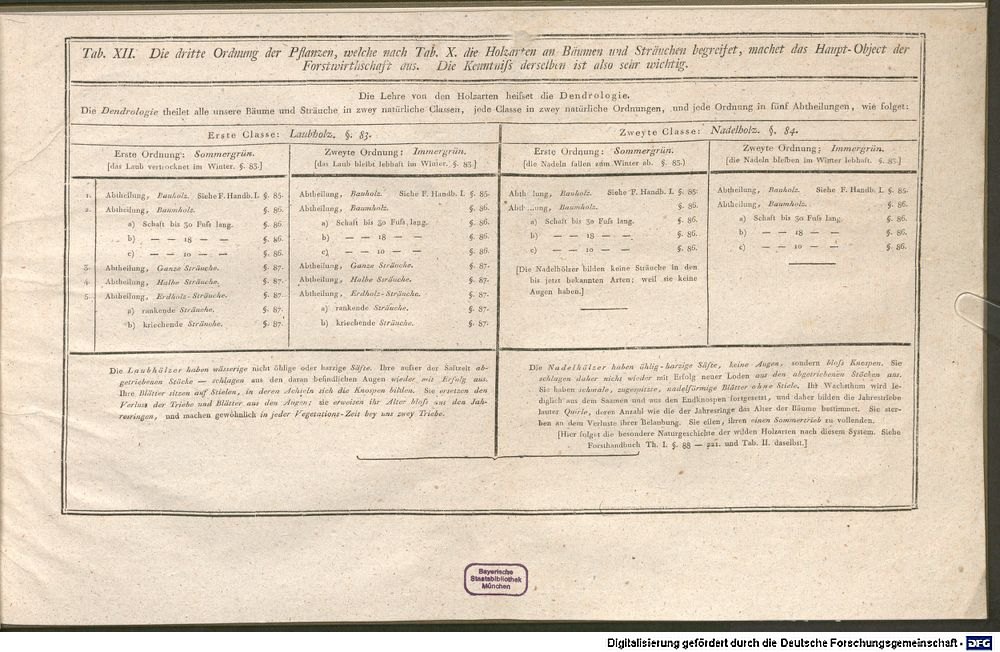 Tab. XII. Die dritte Ordnung der Pflanzen, welche nach Tab. X. die Holzarten an Bäumen und Sträuchen begreifet, machet das Haupt-Object der
Forstwirthschaft aus. Die Kenntniſs derselben ist also sehr wichtig.
Die Lehre von den Holzarten heiſset die Dendrologie.
Die Dendrologie theilet alle unsere Bäume und Sträuche in zwey natürliche Classen, jede Classe in zwey natürliche Ordnungen, und jede Ordnung in fünf Abtheilungen, wie folget:
Erste Classe: Laubholz. §. 83.
Erste Ordnung: Sommergrün.
[das Laub vertrocknet im Winter. §. 83.]
1. Abtheilung, Bauholz. Siehe F. Handb. I. §. 85.
2. Abtheilung, Baumholz. §. 86.
a) Schaft bis 30 Fuſs lang. §. 86.
b) — — 18 — — §. 86.
c) — — 10 — — §. 86.
3. Abtheilung, Ganze Sträuche. §. 87.
4. Abtheilung, Halbe Sträuche. §. 87.
5. Abtheilung, Erdholz-Sträuche. §. 87.
a) rankende Sträuche. §. 87.
b) kriechende Sträuche. §. 87.
Zweyte Ordnung: Immergrün.
[das Laub bleibt lebhaft im Winter. §. 83.]
Abtheilung, Bauholz. Siehe F. Handb. I. §. 85.
Abtheilung, Baumholz. §. 86.
a) Schaft bis 30 Fuſs lang. §. 86.
b) — — 18 — — §. 86.
c) — — 10 — — §. 86.
Abtheilung, Ganze Sträuche. §. 87.
Abtheilung, Halbe Sträuche. §. 87.
Abtheilung, Erdholz-Sträuche. §. 87.
a) rankende Sträuche. §. 87.
b) kriechende Sträuche. §. 87.
Zweyte Classe: Nadelholz. §. 84.
Erste Ordnung: Sommergrün.
[die Nadeln fallen zum Winter ab. §. 83.]
Abtheilung, Bauholz. Siehe F. Handb. I. §. 85.
Abtheilung, Baumholz. §. 86.
a) Schaft bis 30 Fuſs lang. §. 86.
b) — — 18 — — §. 86.
c) — — 10 — — §. 86.
[Die Nadelhölzer bilden keine Sträuche in den
bis jetzt bekannten Arten; weil sie keine
Augen haben.]
Zweyte Ordnung: Immergrün.
[die Nadeln bleiben im Winter lebhaft. §. 83.]
Abtheilung, Bauholz. Siehe F. Handb. I. §. 85.
Abtheilung, Baumholz. §. 86.
a) Schaft bis 30 Fuſs lang. §. 86.
b) — — 18 — — §. 86.
c) — — 10 — — §. 86.
Die Laubhölzer haben wässerige nicht öhlige oder harzige Säfte. Ihre auſser der Saftzeit ab-
getriebenen Stöcke — schlagen aus den daran befindlichen Augen wieder mit Erfolg aus.
Ihre Blätter sitzen auf Stielen, in deren Achseln sich die Knospen bilden. Sie ersetzen den
Verlust der Triebe und Blätter aus den Augen; sie erweisen ihr Alter bloſs aus den Jah-
resringen, und machen gewöhnlich in jeder Vegetations-Zeit bey uns zwey Triebe.
Die Nadelhölzer haben öhlig-harzige Säfte, keine Augen, sondern bloſs Knospen. Sie
schlagen daher nicht wieder mit Erfolg neuer Loden aus den abgetriebenen Stöcken aus.
Sie haben schmale, zugespitzte, nadelförmige Blätter ohne Stiele. Ihr Wachsthum wird le-
diglich aus dem Saamen und aus den Endknospen fortgesetzt, und daher bilden die Jahrestriebe
lauter Quirle, deren Anzahl wie die der Jahresringe das Alter der Bäume bestimmet. Sie ster-
ben an dem Verluste ihrer Belaubung. Sie eilen, ihren einen Sommertrieb zu vollenden.
[Hier folget die besondere Naturgeschichte der wilden Holzarten nach diesem System. Siehe
Forsthandbuch Th. I. §. 88 — 221. und Tab. II. daselbst.]
Bayerische
Staatsbibliothek
München
Digitalisierung gefördert durch die Deutsche Forschungsgemeinschaft - DFG